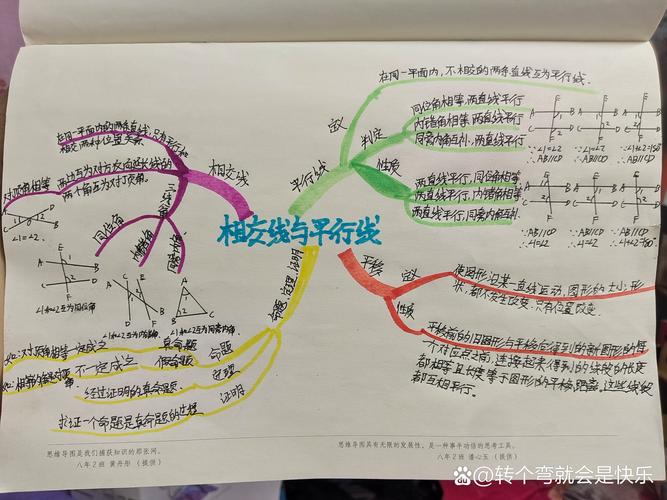 相交线与平行线
相交线
在同一平面内的两条直线,只有平行和
相交两种位置关系
两边互为对方反向延长线的
两个角互为对顶角。
对顶角相等
∠1=∠2.
三线八角
同位角
内错角
同旁内角
∠1和∠2互为同位角
∠1和∠2互为内错角
∠1和∠2互为同旁内角.
平行线
定义
在同一平面内,不相交的两条直线互为平行线.
判定
同位角相等,两直线平行
内错角相等,两直线平行
同旁内角互补,两直线平行
∵∠1=∠2 ∵∠1=∠2 ∵∠1+∠2=180
∴AB//CD ∴AB//CD ∴AB//CD
性质
两直线平行,同位角相等
两直线平行,内错角相等
两直线平行,同旁内角互补.
∵AB//CD ∵AB//CD ∵AB//CD
∴∠1=∠2 ∴∠1=∠2 ∴∠1+∠2=180°
平移
定义
使图形沿某一直线运动,图形的大小,形
状,都不发生改变.只有位置改变.
性质
平移前的旧图形与平移后得到的新图形的每
一个对应点之间,连接起来得到的线段的长度
都相等且长度等于图形的平移距离,这些线段
都互相平行.
命题,定理,证明
命题
真命题
对顶角相等一定成立
假命题
不一定成立
定理
经过证明的真命题.
证明
求证一个命题是真命题的过程
思维导图是我们捕获知识的那张网。
八年2班 黄丹彤 (提供)
思维导图具有无限的发展性,是一种事半功倍的思考工具。
八年2班 潘心玉 (提供)
转个弯就会是快乐